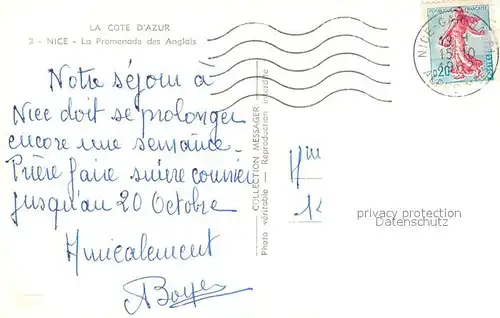 LA COTE D'AZUR
2 - NICE - La Promenade des Anglais
Notre séjour à
Nice doit se prolonger
encore une semaine -
Prière faire suivre courrier
jusqu'au 20 Octobre
Amicalement
ABoyer
COLLECTION MESSAGER
Photo véritable - Reproduction interdite
REPUBLIQUE FRANÇAISE
0,20
NICE
privacy protection
Datenschutz